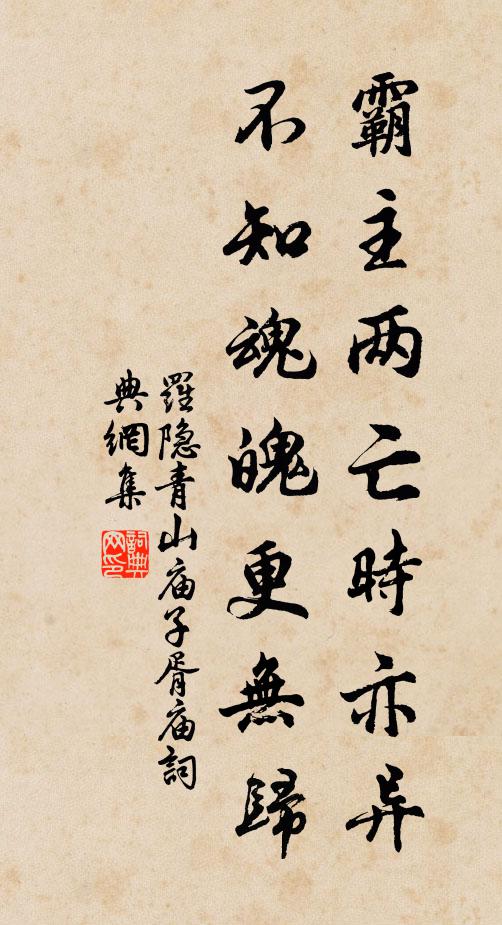 霸主两亡時亦异
不知魂魄更無歸
羅隐青山庙子胥庙詞
典網集
詞典网印